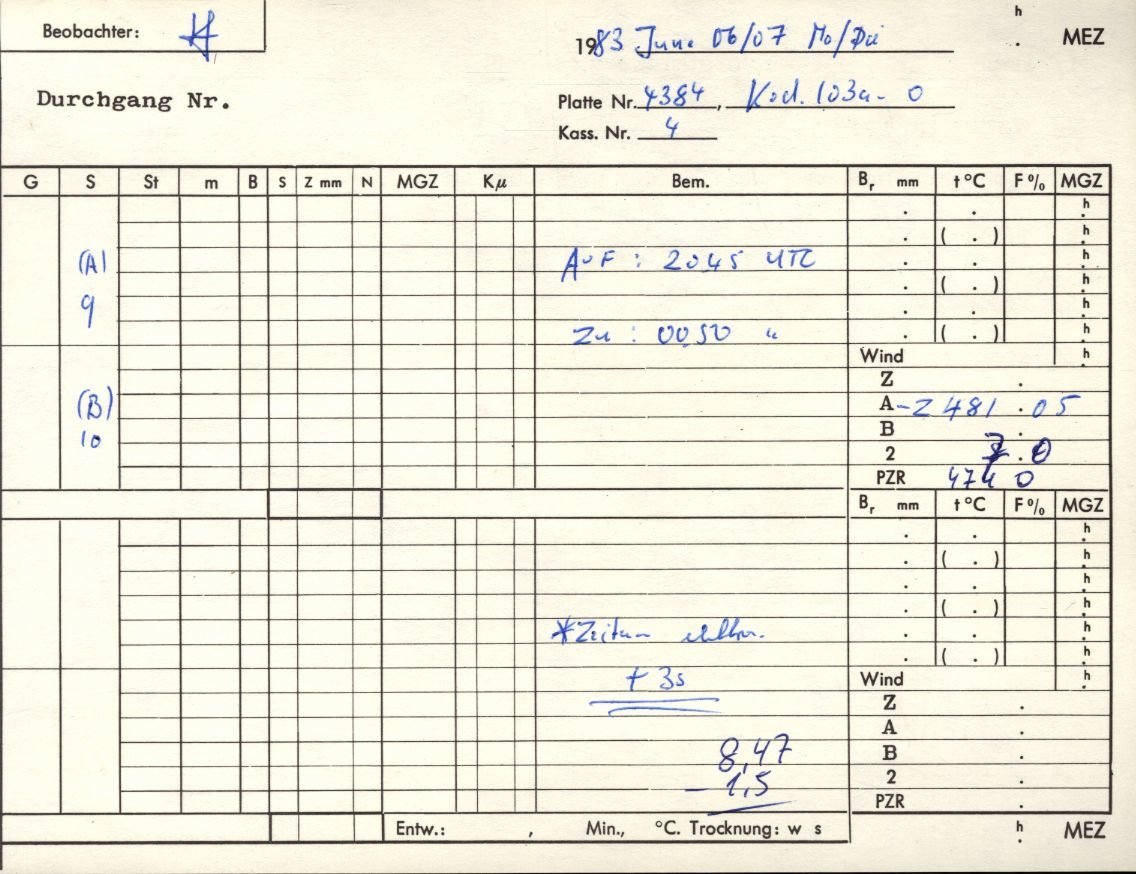 Beobachter:
h
1983 June 06/07 Mo/Di . MEZ
Durchgang Nr.
Platte Nr. 4384, Kod. 103a-O
Kass. Nr. 4
G S St m B S Z mm N MGZ Kµ Bem. Br mm t °C F % MGZ
. . h
. ( . ) h
(A) Auf : 20 45 UTC . . h
. ( . ) h
9 . . h
Zu : 00 50 " . ( . ) h
Wind h
Z .
(B) A -2 481 . 05
B .
10 2 . 0
PZR 474 0
Br mm t °C F % MGZ
. . h
. ( . ) h
. . h
. ( . ) h
*Zeitun . . h
. ( . ) h
+ 3s Wind h
Z .
A .
8,47 B .
- 1,5 2 .
PZR .
Entw.: , Min., °C. Trocknung: w s h . MEZ